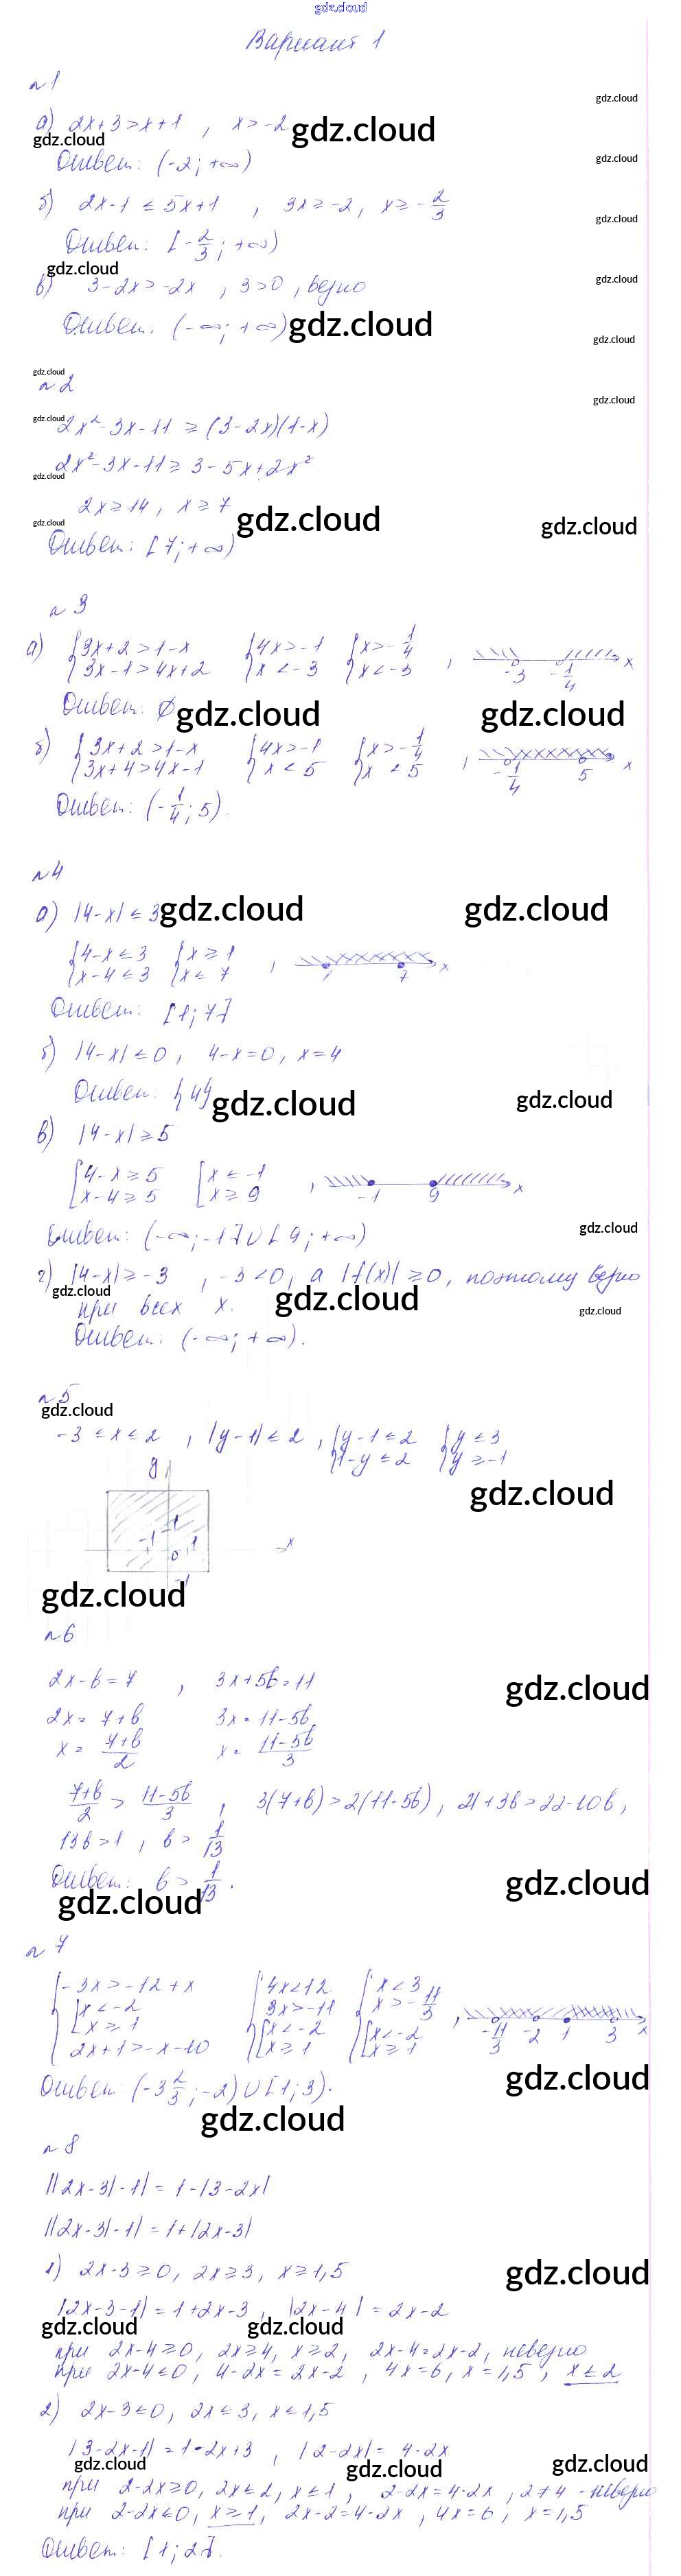 gdz.cloud
Вариант 1
n 1
а) 2x+3>x+1 , x>-2 gdz.cloud
gdz.cloud
gdz.cloud
Ответ: (-2; +∞)
gdz.cloud
б) 2x-1 ≤ 5x+1 , 3x ≥ -2, x ≥ -2/3
gdz.cloud
Ответ: [-2/3; +∞)
gdz.cloud
в) 3-2x>-2x , 3>0, верно
gdz.cloud
Ответ: (-∞; +∞) gdz.cloud
gdz.cloud
gdz.cloud
n 2
gdz.cloud
gdz.cloud
2x²-3x-11 ≥ (3-2x)(1-x)
2x²-3x-11 ≥ 3-5x+2x²
gdz.cloud
2x ≥ 14, x ≥ 7
gdz.cloud
gdz.cloud
gdz.cloud
Ответ: [7; +∞)
n 3
а) {3x+2>1-x {4x>-1 {x>-1/4
3x-1>4x+2 x<-3 x<-3 , -3 -1/4 x
Ответ: ∅ gdz.cloud
gdz.cloud
б) {3x+2>1-x {4x>-1 {x>-1/4
3x+4>4x-1 x<5 x<5 , -1/4 5 x
Ответ: (-1/4; 5).
n 4
а) |4-x| ≤ 3 gdz.cloud
gdz.cloud
{4-x ≤ 3 {x ≥ 1
x-4 ≤ 3 x ≤ 7 , 1 7 x
Ответ: [1; 7]
б) |4-x| ≤ 0, 4-x=0, x=4
Ответ: {4} gdz.cloud
gdz.cloud
в) |4-x| ≥ 5
[4-x ≥ 5 [x ≤ -1
x-4 ≥ 5 x ≥ 9 , -1 9 x
Ответ: (-∞; -1] ∪ [9; +∞)
gdz.cloud
г) |4-x| ≥ -3 , -3<0, а |f(x)| ≥ 0, поэтому верно
gdz.cloud
при всех x. gdz.cloud
gdz.cloud
Ответ: (-∞; +∞).
n 5
gdz.cloud
-3 ≤ x ≤ 2 , |y-1| ≤ 2 , {y-1 ≤ 2 {y ≤ 3
1-y ≤ 2 y ≥ -1
y
gdz.cloud
1
-1 0 1 x
-1
gdz.cloud
n 6
2x-b=7 , 3x+5b=11
gdz.cloud
2x=7+b 3x=11-5b
x= (7+b)/2 x= (11-5b)/3
(7+b)/2 > (11-5b)/3 , 3(7+b)>2(11-5b), 21+3b>22-10b,
13b>1 , b> 1/13
Ответ: b> 1/13.
gdz.cloud
gdz.cloud
n 7
{-3x>-12+x {4x<12 {x<3
[x<-2 3x>-11 x>-11/3
x ≥ 1 [x<-2 [x<-2
2x+1>-x-10 x ≥ 1 x ≥ 1 , -11/3 -2 1 3 x
Ответ: (-3 2/3; -2) ∪ [1; 3).
gdz.cloud
gdz.cloud
n 8
||2x-3|-1| = 1-|3-2x|
||2x-3|-1| = 1+|2x-3|
1) 2x-3 ≥ 0, 2x ≥ 3, x ≥ 1,5
gdz.cloud
|2x-3-1| = 1+2x-3, |2x-4| = 2x-2
gdz.cloud
gdz.cloud
при 2x-4 ≥ 0, 2x ≥ 4, x ≥ 2, 2x-4=2x-2, неверно
при 2x-4 ≤ 0, 4-2x=2x-2 , 4x=6, x=1,5, x ≤ 2
2) 2x-3 ≤ 0, 2x ≤ 3, x ≤ 1,5
|3-2x-1| = 1-2x+3 , |2-2x| = 4-2x
gdz.cloud
gdz.cloud
gdz.cloud
при 2-2x ≥ 0, 2x ≤ 2, x ≤ 1, 2-2x=4-2x, 2≠4 - неверно
при 2-2x<0, x ≥ 1, 2x-2=4-2x , 4x=6, x=1,5
Ответ: [1; 2].